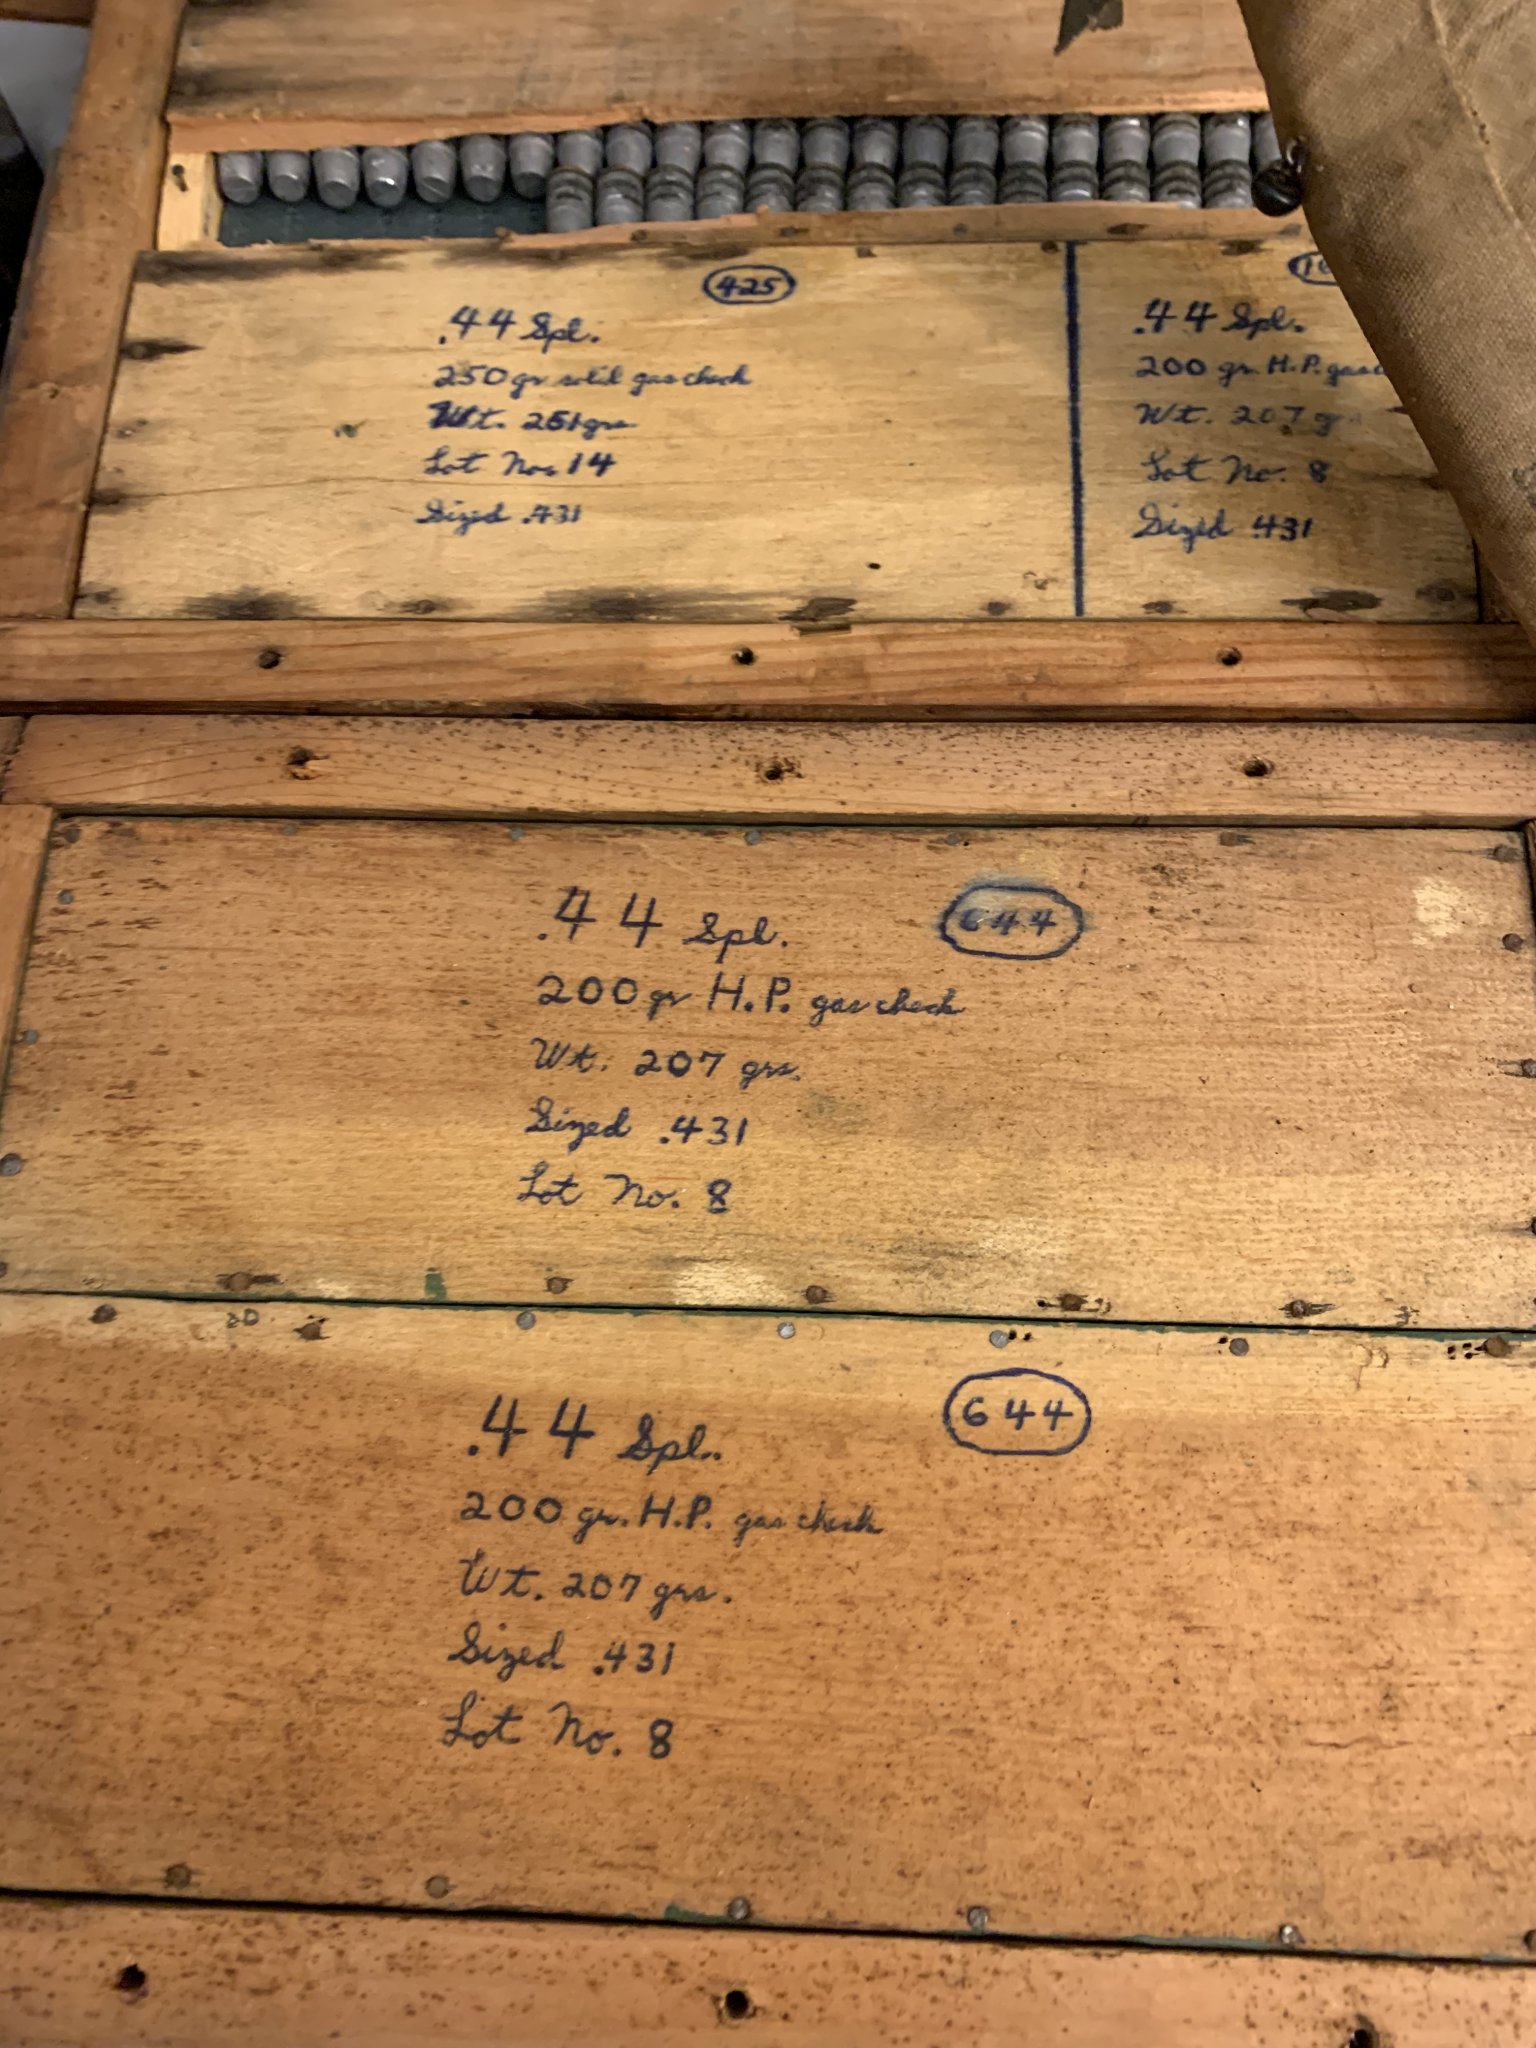 425
.44 Spl.
250 gr solid gas check
Wt. 251 grs
Lot No. 14
Sized .431
.44 Spl.
200 gr. H.P.
Wt. 207
Lot No. 8
Sized .431
.44 Spl.
644
200 gr H.P. gas check
Wt. 207 grs.
Sized .431
Lot No. 8
.44 Spl.
644
200 gr. H.P. gas check
Wt. 207 grs.
Sized .431
Lot No. 8